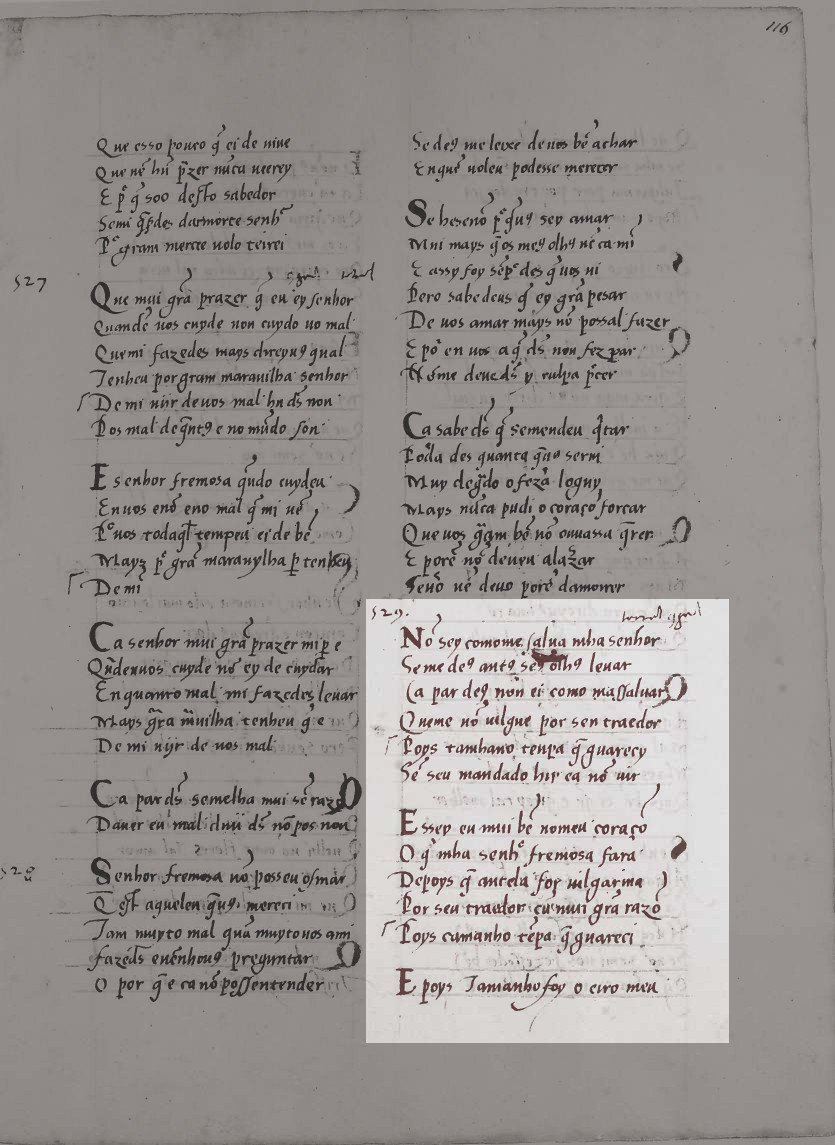 116
Que esso pouco q̃ ei de uiue
Que nẽ hũ p̃zer nũca ueerey
E pͥ q̃ soo desto sabedor
Semi q̃redes dar morte senhͦ
Pͦ gram merece uolo teirei
527
Que mui grã prazer q̃ eu ey senhor
Quandẽ uos cuyde non cuydo no mal
Que mi fazedes mays direyuꝯ qual
Tenheu por gram marauilha senhor
De mi uijr de uos mal hu ds̃ non
Pos mal de q̃ntꝯ e no mũdo son
E senhor fremosa q̃ndo cuydeu
En uos enõ eno mal q̃ mi uẽ
Pͦ uos todaq̃l tempeu ei de bẽ
Mayz pͥ grã marauylha p tenheu
De mi
Ca senhor mui grã prazer mi p e
Qñdeuuos cuyde nõ ey de cuydar
En quanto mal mi fazedes leuar
Mays grã marauilha tenheu q̃ e
De mi uijr de uos mal
Ca par ds̃ semelha mui sẽ razõ
Dauer eu mal du ds̃ nõ pos non
528
Senhor fremosa nõ posseu osmar
Q̃ est aquel en q̃ uꝯ mereci
Tam muyto mal quã muyto uos ami
fazeds̃ e uẽnhouꝯ preguntar
O por q̃ e ca nõ poss entender
Se deꝯ me leixe de uos bẽ achar
En que uoleu podesse merecer
Se he senõ pͥ q̃ uꝯ sey amar
Mui mays q̃ os meꝯ olhꝯ nẽ ca mi
E assy foy sẽpͥ des q̃ uos ui
Pero sabe deus q̃ ey grã pesar
De uos amar mays nõ possal fazer
E poͬ en uos a q̃ ds̃ non fez par
Nõ me deueds̃ y culpa põer
Ca sabe ds̃ q̃ semendeu q̃tar
Podã des quanta q̃ uꝯ serui
Muy de g̃do o fezã loguy
Mays nũca pudi o coraçõ forçar
Que uos grã bẽ nõ ouuessa q̃rer
E porẽ nõ deueu alazerar
Senõ nẽ deuo porẽ damorrer
529.
Nõ sey como me salua mha senhor
Se me deꝯ antꝯ seꝯ olhꝯ leuar
Ca par deꝯ non ei como massaluar
Que me nõ uilgue por sen traedor
Poys tamhano tenpa q̃ guarecy
Sẽ seu mandado hir ea nõ uir
E ssey eu mui bẽ no meu coraçõ
O q̃ mha senhͦ fremosa fara
Depoys q̃ antela foy uilgarma
Por seu traedor cũ mui grã razõ
Poys camanho tẽpa q̃ guareci
E poys Tamanho foy o erro meu